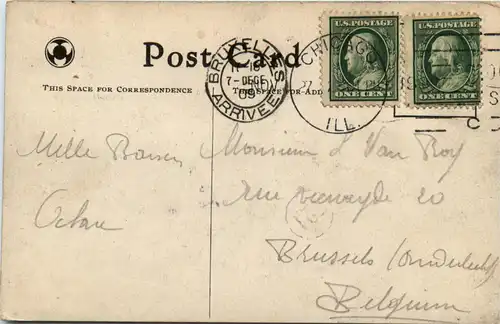 Post Card
THIS SPACE FOR CORRESPONDENCE
THIS SPACE FOR ADD
BRUXELLES
7-DECE
09
ARRIVEE
CHICAGO
ILL.
U.S. POSTAGE
ONE CENT
U.S. POSTAGE
ONE CENT
Mille Baisers
Octave
Monsieur L Van Roy
rue 20
Brussels
Belgium